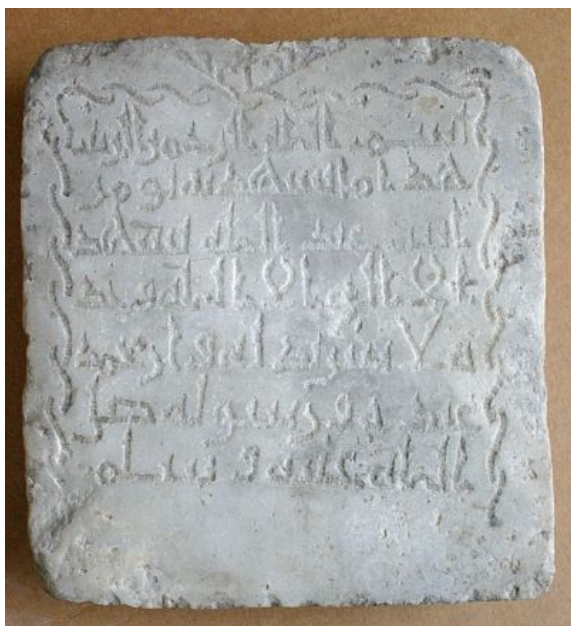 بسم الله الرحمن الرحيم
هذا ما تشهد به
بنت عبد الله تشهد
الا اله الا الله وحد
ه لا شريك له و ان محمد
عبده و رسوله صلى
الله عليه و سلم